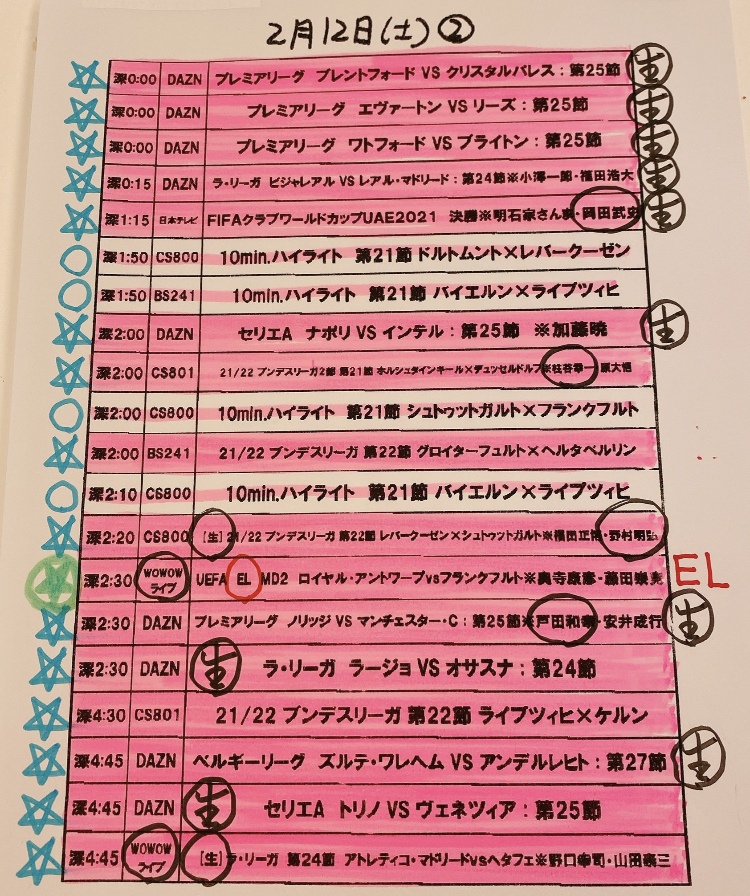 2月12日(土)②
深0:00 DAZN プレミアリーグ ブレントフォード VS クリスタルパレス:第25節 生
深0:00 DAZN プレミアリーグ エヴァートン VS リーズ:第25節 生
深0:00 DAZN プレミアリーグ ワトフォード VS ブライトン:第25節 生
深0:15 DAZN ラ・リーガ ビジャレアル VS レアル・マドリード:第24節※小澤一郎・福田浩大 生
深1:15 日本テレビ FIFAクラブワールドカップUAE2021 決勝※明石家さんま・岡田武史 生
深1:50 CS800 10min.ハイライト 第21節 ドルトムント×レバークーゼン
深1:50 BS241 10min.ハイライト 第21節 バイエルン×ライプツィヒ
深2:00 DAZN セリエA ナポリ VS インテル:第25節 ※加藤暁 生
深2:00 CS801 21/22 ブンデスリーガ2部 第21節 ホルシュタインキール×デュッセルドルフ※柱谷幸一・原大悟
深2:00 CS800 10min.ハイライト 第21節 シュトゥットガルト×フランクフルト
深2:00 BS241 21/22 ブンデスリーガ 第22節 グロイターフュルト×ヘルタベルリン
深2:10 CS800 10min.ハイライト 第21節 バイエルン×ライプツィヒ
深2:20 CS800 [生]21/22 ブンデスリーガ 第22節 レバークーゼン×シュトゥットガルト※福田正博・野村明弘
深2:30 WOWOWライブ UEFA EL MD2 ロイヤル・アントワープvsフランクフルト※奥寺康彦・藤田崇寛 EL
深2:30 DAZN プレミアリーグ ノリッジ VS マンチェスター・C:第25節※戸田和幸・安井成行 生
深2:30 DAZN 生 ラ・リーガ ラージョ VS オサスナ:第24節
深4:30 CS801 21/22 ブンデスリーガ 第22節 ライプツィヒ×ケルン
深4:45 DAZN ベルギーリーグ ズルテ・ワレヘム VS アンデルレヒト:第27節 生
深4:45 DAZN 生 セリエA トリノ VS ヴェネツィア:第25節
深4:45 WOWOWライブ [生]ラ・リーガ 第24節 アトレティコ・マドリードvsヘタフェ※野口幸司・山田泰三